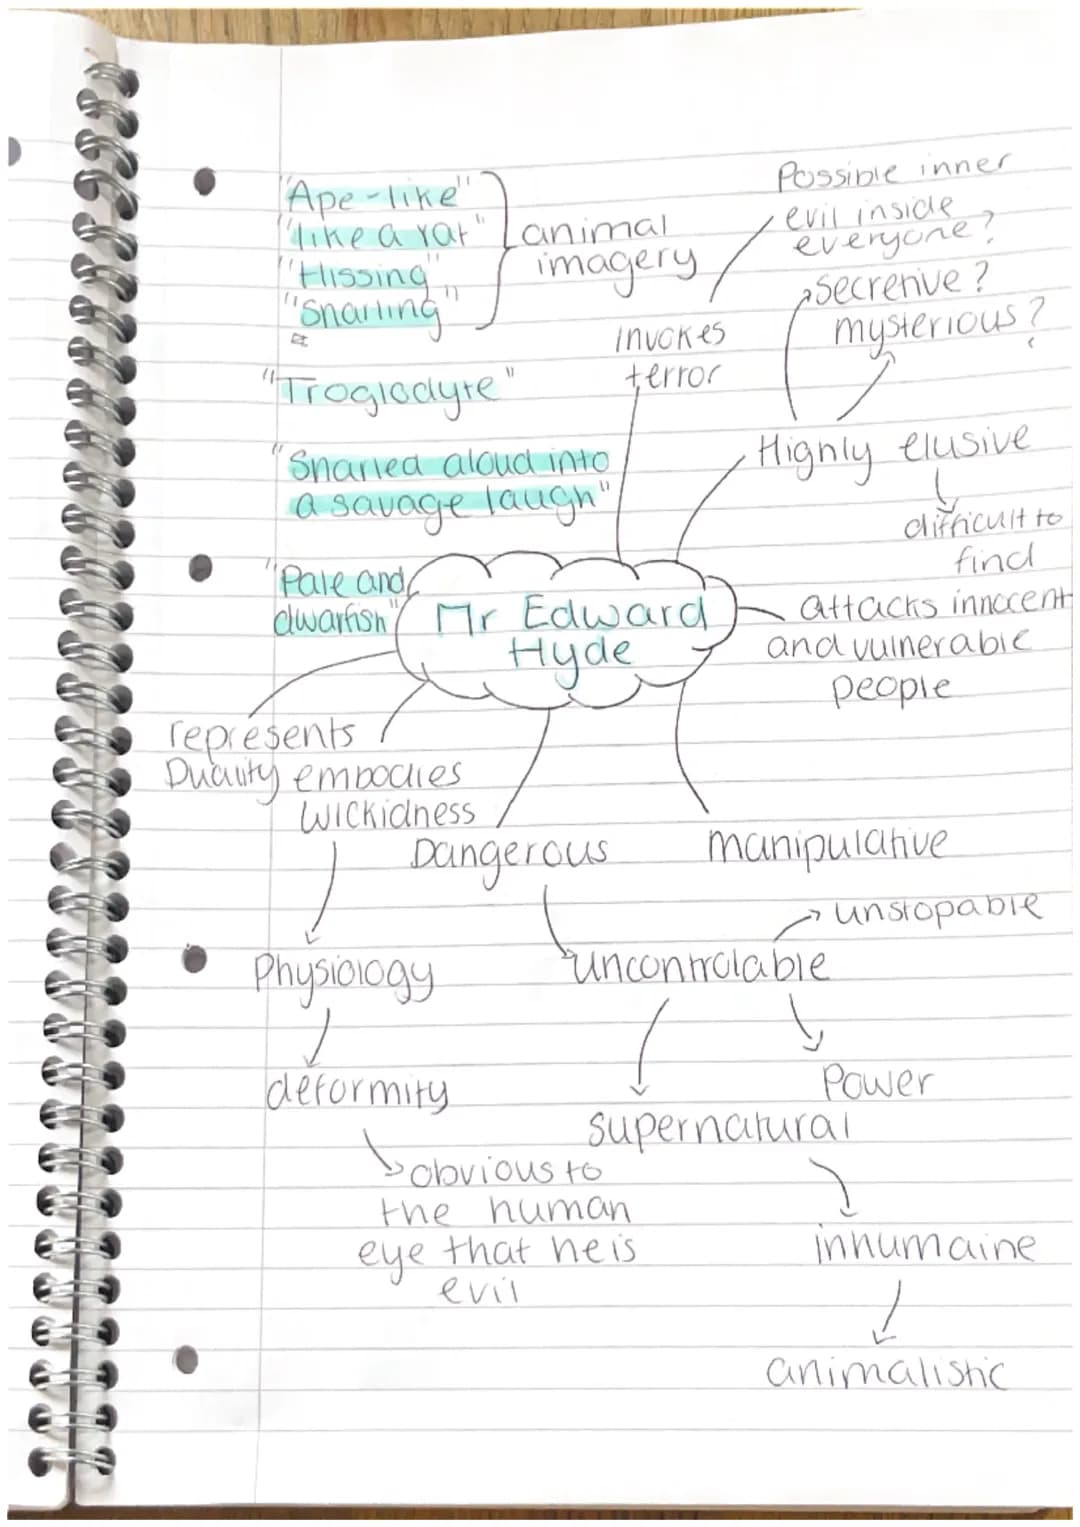 "Ape-like"
"like a rat"
"Hissing"
"Snarling"
animal
imagery
Possible inner
evil inside
everyone?
secretive?
mysterious?
invokes
terror
"Troglodyte"
Highly elusive
"Snarled aloud into
a savage laugh"
difficult to
find
"Pale and
dwarfish"
Mr Edward
Hyde
attacks innocent
and vulnerable
people
represents
Duality
embodies
wickidness
Dangerous
manipulative
unstopable
Physiology
uncontrolable
deformity
Power
supernatural
obvious to
the human
eye that he is
evil
inhumaine
animalistic